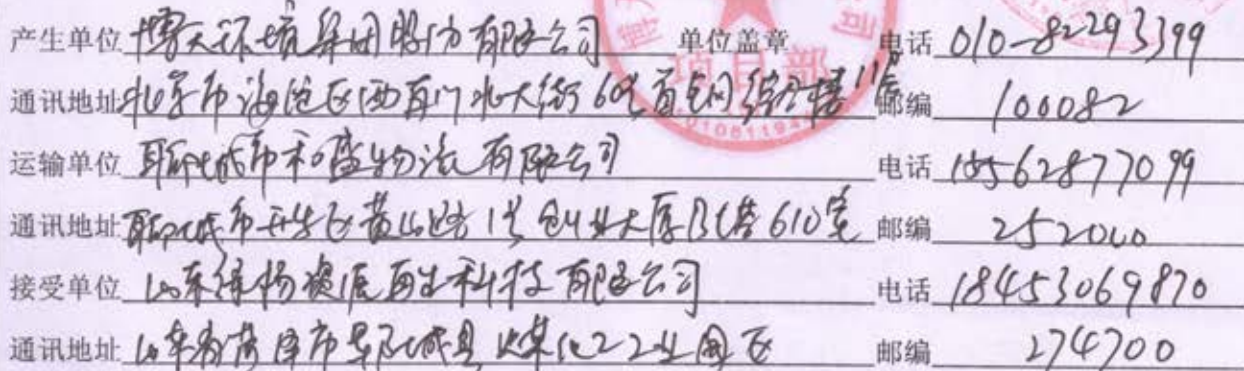 产生单位 博天环境集团股份有限公司 单位盖章 电话 010-82293399
通讯地址 北京市海淀区西直门北大街60号首钢综合楼11层 邮编 100082
运输单位 聊城市和盛物流有限公司 电话 15562877099
通讯地址 聊城市开发区黄山路1号创业大厦B塔610室 邮编 252000
接受单位 山东绿杨资源再生科技有限公司 电话 18453069870
通讯地址 山东省菏泽市郓城县煤化工工业园区 邮编 274700
项目部